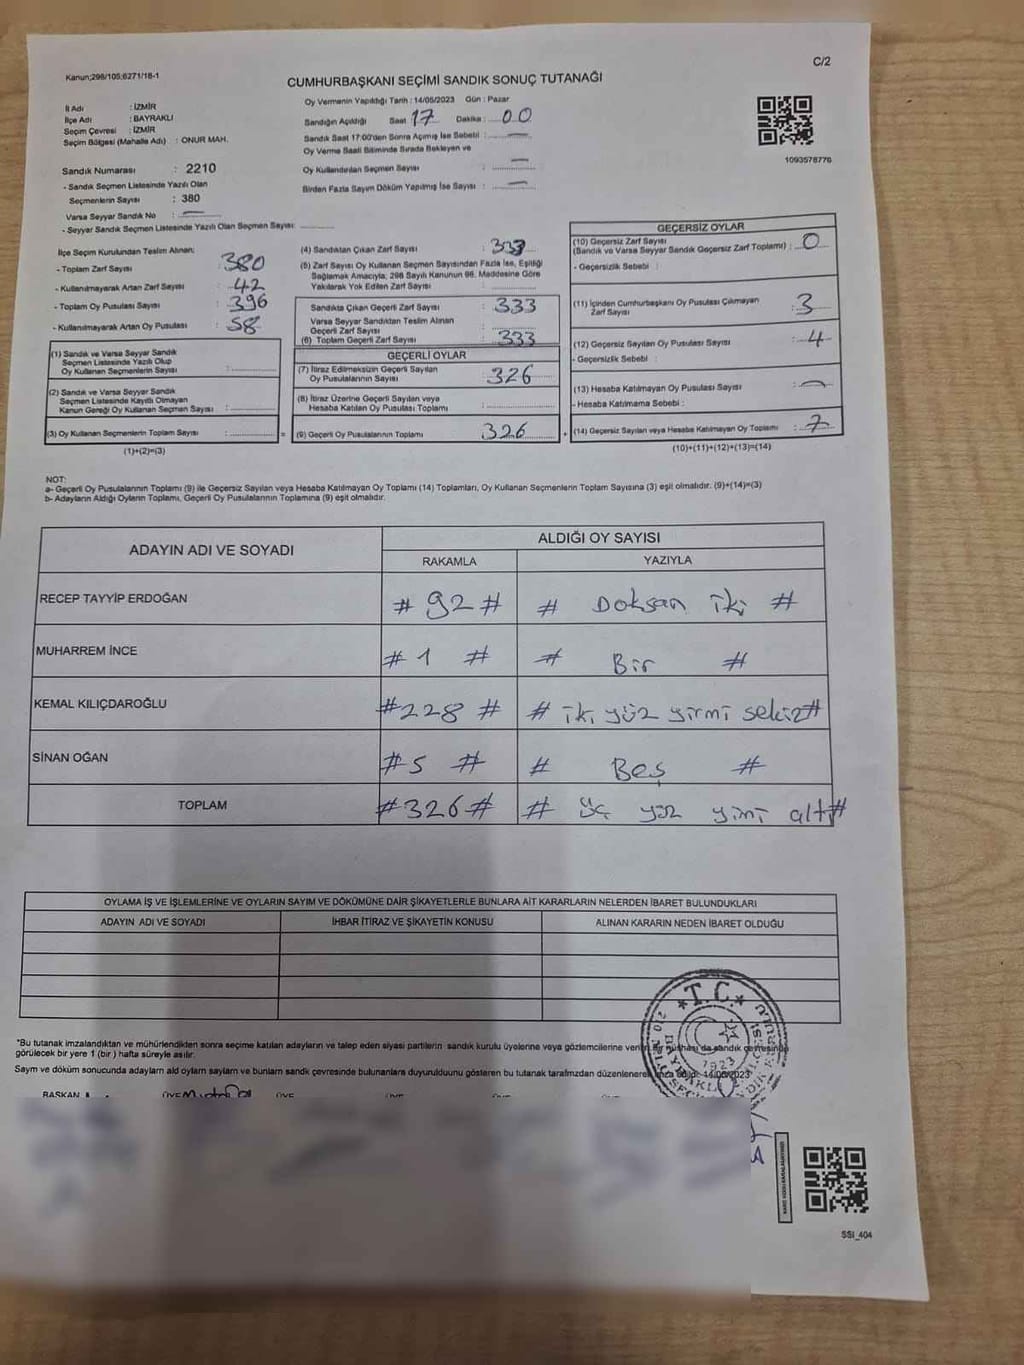 Kanun;298/105;6271/18-1
C/2
CUMHURBAŞKANI SEÇİMİ SANDIK SONUÇ TUTANAĞI
İl Adı : İZMİR
İlçe Adı : BAYRAKLI
Seçim Çevresi : İZMİR
Seçim Bölgesi (Mahalle Adı) : ONUR MAH.
Oy Vermenin Yapıldığı Tarih : 14/05/2023 Gün : Pazar
Sandığın Açıldığı Saat 17 Dakika : 00
Sandık Saat 17:00'den Sonra Açımış İse Sebebi : —
Oy Verme Saati Bitiminde Sırada Bekleyen ve
Oy Kullandırılan Seçmen Sayısı : —
Birden Fazla Sayım Döküm Yapılmış İse Sayısı : —
1093578776
Sandık Numarası : 2210
- Sandık Seçmen Listesinde Yazılı Olan
Seçmenlerin Sayısı : 380
Varsa Seyyar Sandık No : —
- Seyyar Sandık Seçmen Listesinde Yazılı Olan Seçmen Sayısı:
İlçe Seçim Kurulundan Teslim Alınan:
- Toplam Zarf Sayısı : 380
- Kullanılmayarak Artan Zarf Sayısı : 42
- Toplam Oy Pusulası Sayısı : 396
- Kullanılmayarak Artan Oy Pusulası : 58
(1) Sandık ve Varsa Seyyar Sandık
Seçmen Listesinde Yazılı Olup
Oy Kullanan Seçmenlerin Sayısı :
(2) Sandık ve Varsa Seyyar Sandık
Seçmen Listesinde Kayıtlı Olmayan
Kanun Gereği Oy Kullanan Seçmen Sayısı :
(3) Oy Kullanan Seçmenlerin Toplam Sayısı :
(1)+(2)=(3)
(4) Sandıktan Çıkan Zarf Sayısı : 333
(5) Zarf Sayısı Oy Kullanan Seçmen Sayısından Fazla İse, Eşitliği
Sağlamak Amacıyla; 298 Sayılı Kanunun 98. Maddesine Göre
Yakılarak Yok Edilen Zarf Sayısı :
Sandıkta Çıkan Geçerli Zarf Sayısı : 333
Varsa Seyyar Sandıktan Teslim Alınan
Geçerli Zarf Sayısı :
(6) Toplam Geçerli Zarf Sayısı : 333
GEÇERLİ OYLAR
(7) İtiraz Edilmeksizin Geçerli Sayılan
Oy Pusulalarının Sayısı : 326
(8) İtiraz Üzerine Geçerli Sayılan veya
Hesaba Katılan Oy Pusulası Toplamı :
= (9) Geçerli Oy Pusulalarının Toplamı 326 +
GEÇERSİZ OYLAR
(10) Geçersiz Zarf Sayısı
(Sandık ve Varsa Seyyar Sandık Geçersiz Zarf Toplamı) : 0
- Geçersizlik Sebebi :
(11) İçinden Cumhurbaşkanı Oy Pusulası Çıkmayan
Zarf Sayısı : 3
(12) Geçersiz Sayılan Oy Pusulası Sayısı : 4
- Geçersizlik Sebebi :
(13) Hesaba Katılmayan Oy Pusulası Sayısı : —
- Hesaba Katılmama Sebebi :
(14) Geçersiz Sayılan veya Hesaba Katılmayan Oy Toplamı : 7
(10)+(11)+(12)+(13)=(14)
NOT:
a- Geçerli Oy Pusulalarının Toplamı (9) ile Geçersiz Sayılan veya Hesaba Katılmayan Oy Toplamı (14) Toplamları, Oy Kullanan Seçmenlerin Toplam Sayısına (3) eşit olmalıdır. (9)+(14)=(3)
b- Adayların Aldığı Oyların Toplamı, Geçerli Oy Pusulalarının Toplamına (9) eşit olmalıdır.
ADAYIN ADI VE SOYADI
ALDIĞI OY SAYISI
RAKAMLA YAZIYLA
RECEP TAYYİP ERDOĞAN # 92 # # Doksan iki #
MUHARREM İNCE # 1 # # Bir #
KEMAL KILIÇDAROĞLU #228 # # iki yüz yirmi sekiz#
SİNAN OĞAN #5 # # Beş #
TOPLAM #326# # üç yüz yimi altı#
OYLAMA İŞ VE İŞLEMLERİNE VE OYLARIN SAYIM VE DÖKÜMÜNE DAİR ŞİKAYETLERLE BUNLARA AİT KARARLARIN NELERDEN İBARET BULUNDUKLARI
ADAYIN ADI VE SOYADI İHBAR İTİRAZ VE ŞİKAYETİN KONUSU ALINAN KARARIN NEDEN İBARET OLDUĞU
*Bu tutanak imzalandıktan ve mühürlendikten sonra seçime katılan adayların ve talep eden siyasi partilerin sandık kurulu üyelerine veya gözlemcilerine verilir. Bir nüshası da sandık çevresinde
görülecek bir yere 1 (bir ) hafta süreyle asılır.
Sayım ve döküm sonucunda adayların ald oyların sayların ve bunların sandk çevresinde bulunanlara duyurulduunu gösteren bu tutanak tarafmzdan düzenlenerek imza edildi. 14/05/2023
T.C.
1923
BAYRAKLI
BAŞKAN ÜYE ÜYE ÜYE ÜYE
SSI_404